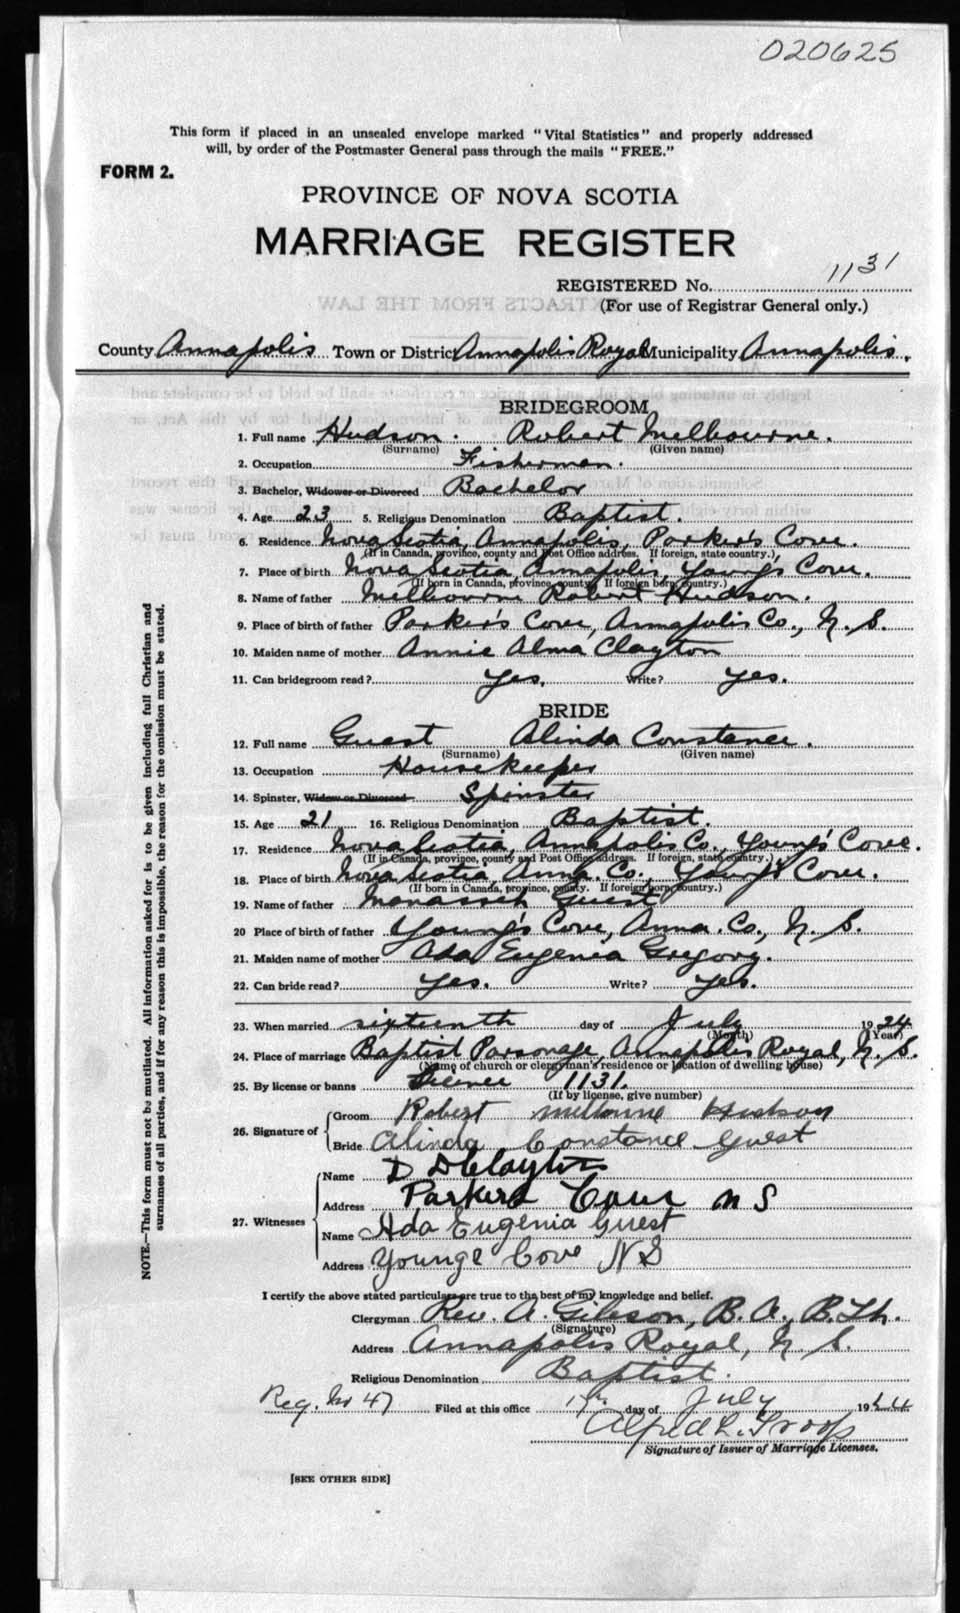 020625
This form if placed in an unsealed envelope marked "Vital Statistics" and properly addressed
will, by order of the Postmaster General pass through the mails "FREE."
FORM 2.
PROVINCE OF NOVA SCOTIA
MARRIAGE REGISTER
REGISTERED No. 1131
(For use of Registrar General only.)
County Annapolis Town or District Annapolis Royal Municipality Annapolis.
BRIDEGROOM
1. Full name Hudson. Robert Melbourne.
(Surname) (Given name)
2. Occupation Fisherman.
3. Bachelor, Widower or Divorced Bachelor
4. Age 23 5. Religious Denomination Baptist.
6. Residence Nova Scotia, Annapolis, Parker's Cove.
(If in Canada, province, county and Post Office address. If foreign, state country.)
7. Place of birth Nova Scotia, Annapolis, Young's Cove.
(If born in Canada, province, county. If foreign born country.)
8. Name of father Melbourne Robert Hudson.
9. Place of birth of father Parker's Cove, Annapolis Co., N. S.
10. Maiden name of mother Annie Alma Clayton
11. Can bridegroom read? Yes. Write? Yes.
BRIDE
12. Full name Guest Alinda Constance.
(Surname) (Given name)
13. Occupation Housekeeper
14. Spinster, Widow or Divorced Spinster
15. Age 21 16. Religious Denomination Baptist.
17. Residence Nova Scotia, Annapolis Co., Young's Cove.
(If in Canada, province, county and Post Office address. If foreign, state country.)
18. Place of birth Nova Scotia, Anna. Co., Young's Cove.
(If born in Canada, province, county. If foreign born country.)
19. Name of father Manasseh Guest
20 Place of birth of father Young's Cove, Anna. Co., N. S.
21. Maiden name of mother Ada Eugenia Gregory.
22. Can bride read? Yes. Write? Yes.
23. When married sixteenth day of July 1924
(Month) (Year)
24. Place of marriage Baptist Parsonage, Annapolis Royal, N. S.
(Name of church or clergyman's residence or location of dwelling house)
25. By license or banns License 1131.
(If by license, give number)
26. Signature of Groom Robert Melbourne Hudson
Bride Alinda Constance Guest
27. Witnesses Name D D Clayton
Address Parkers Cove N S
Name Ada Eugenia Guest
Address Youngs Cove N S
I certify the above stated particulars are true to the best of my knowledge and belief.
Clergyman Rev. A. Gibson, B. A., B. Th.
(Signature)
Address Annapolis Royal, N. S.
Religious Denomination Baptist.
Reg. No 47 Filed at this office day of July 1924
Alfred L. Troop
Signature of Issuer of Marriage Licenses.
[SEE OTHER SIDE]
NOTE.—This form must not be mutilated. All information asked for is to be given including full Christian and
surnames of all parties, and if for any reason this is impossible, the reason for the omission must be stated.